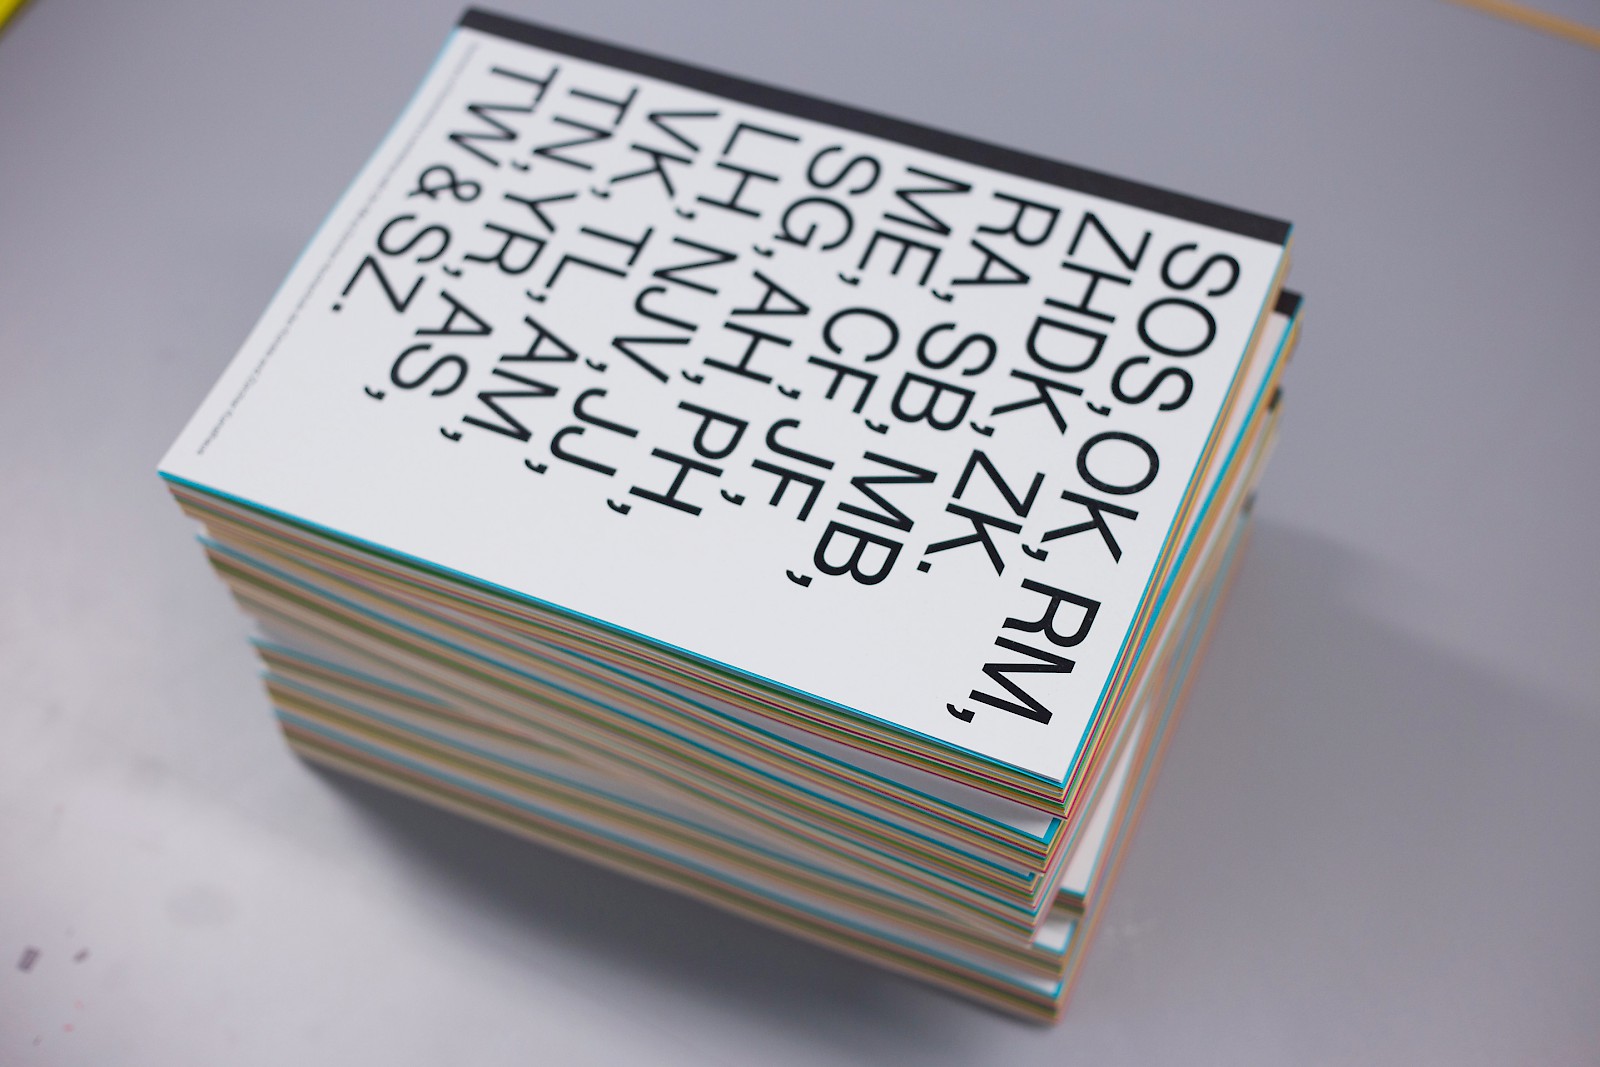 SOS, OK, RM,
ZHDK, ZK.
RA, SB, MB,
ME, CF, JF,
SG, AH, PH,
LH, NJV, JJ,
VK, TL, AM,
TN, YR, AS,
TW & SZ.